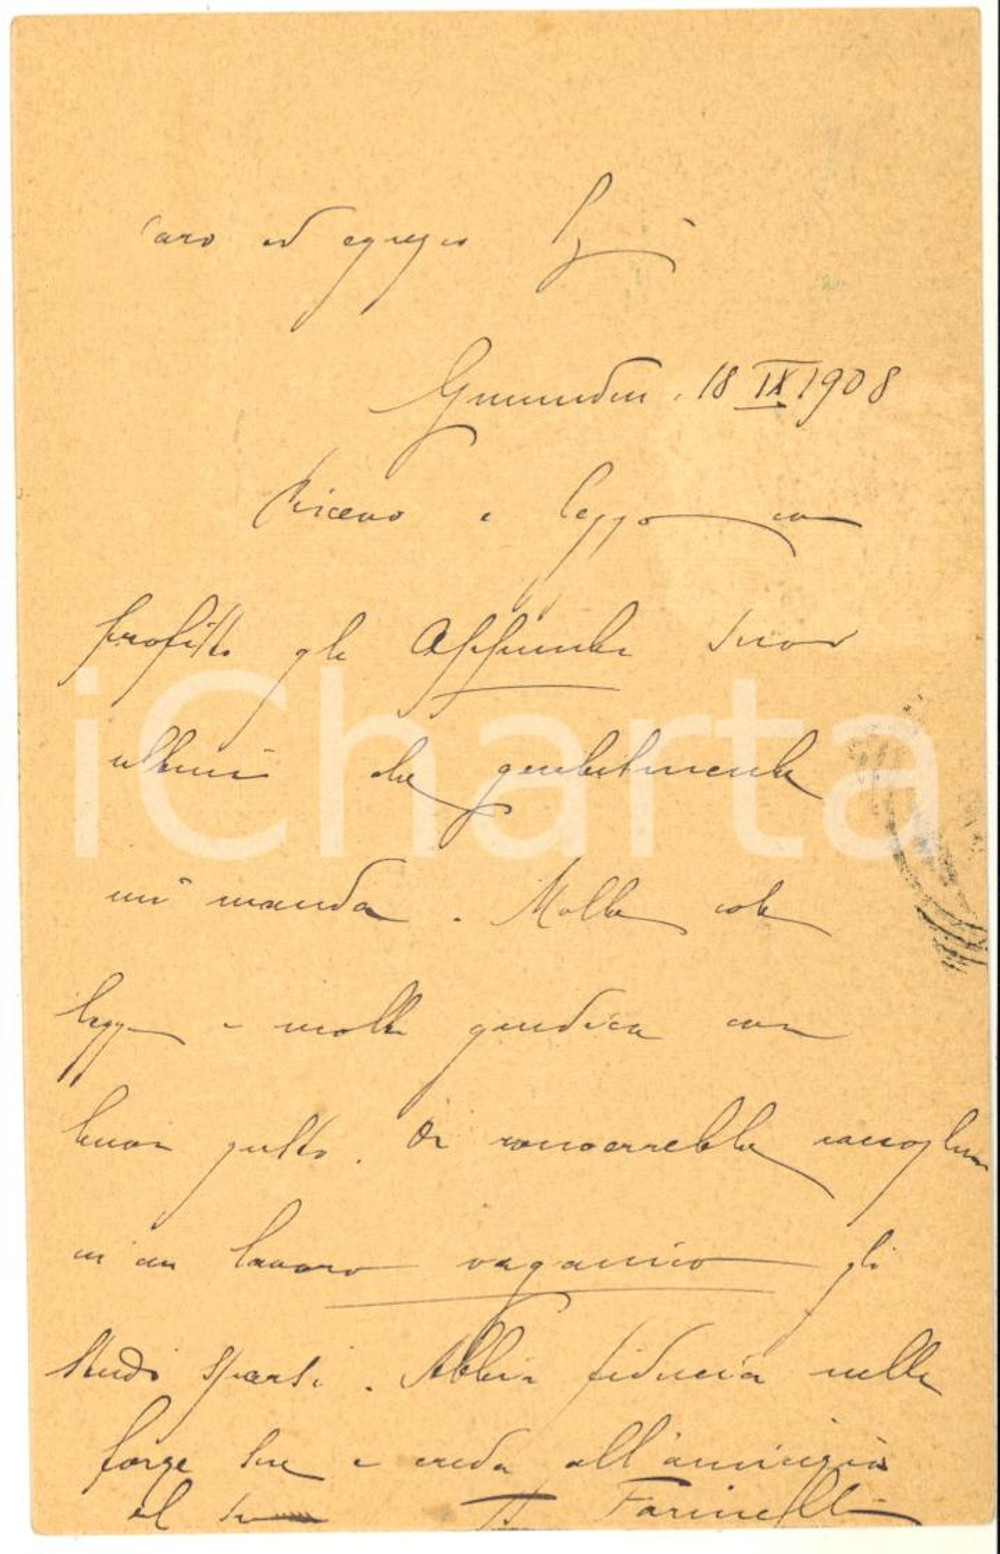 Caro ed egregio
Gmunden, 18 IX 1908
Ricevo e leggo con
profitto gli Appunti suoi
ultimi che gentilmente
mi manda. Molte cose
legge e molte giudica con
buon gusto. Or converrebbe raccogliere
in un lavoro organico gli
studi sparsi. Abbia fiducia nelle
forze sue e creda all'amicizia
del suo A. Farinelli
iCharta